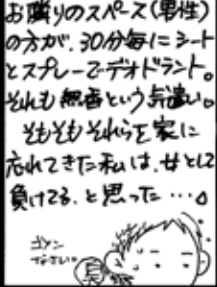 お隣りのスペース(男性)
の方が、30分毎にシート
とスプレーでデオドラント。
それも無香という気遣い。
そもそもそれらを家に
忘れてきた私は、女として
負けてる。と思った…。
ゴメン
ナサイ。
臭